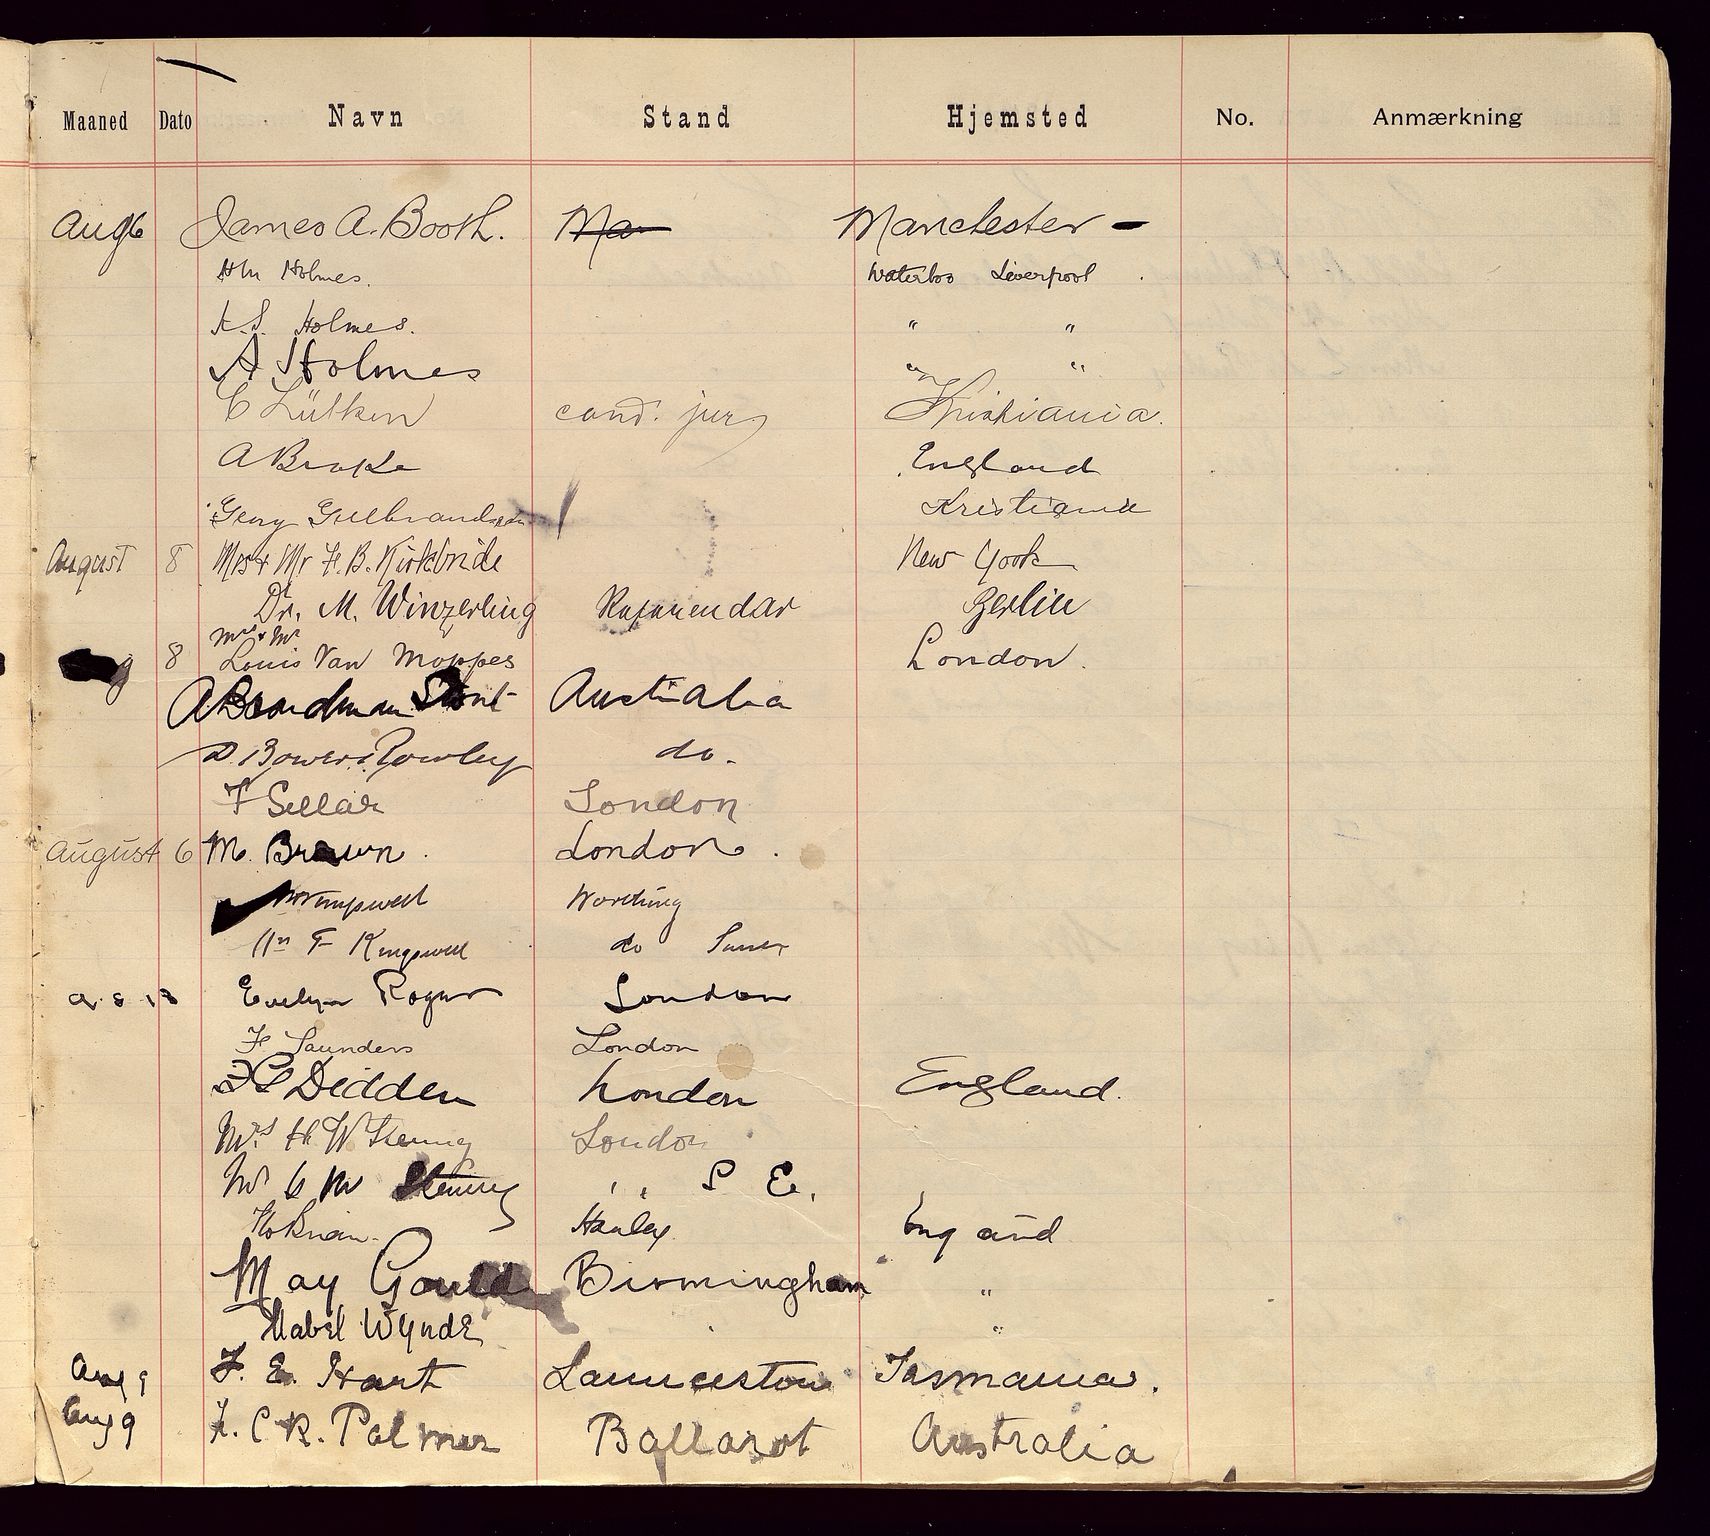 Maaned Dato Navn Stand Hjemsted No. Anmærkning
Aug 6 James A. Booth. Ma Manchester -
Holmes. Waterloo Liverpool
A. S. Holmes. " "
A Holmes " "
C Lütken cand. jur. Kristiania.
A Brake England
Georg Gulbrandsen Kristiania
August 8 Mrs & Mr F. B. Kirkbride New York
Dr. M. Winzerling Referendar Berlin
Mrs & Mr
8 Louis Van Moppes London.
A Boardman Australia
D. Bowers Rowley do.
F Sellar London
August 6 M. Brown. London.
Worthing
F Kingswell do
Evelyn Rogers London
F Saunders London
Didden London England.
Mrs H W London
Mr S E.
Hanley England
May Gould Birmingham "
Mabel Wynde "
Aug 9 F. E. Hart Launceston Tasmania.
Aug 9 F. C R. Palmer Ballarat Australia